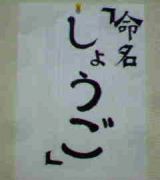 命名
「しょうご」